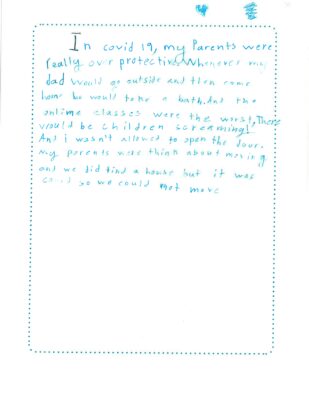 In covid 19, my Parents were
really over protective. Whenever my
dad would go outside and then came
home he would take a bath. And the
online classes were the worst, There
would be children screaming!
And I wasn't allowed to open the door.
my parents were think about moving
and we did find a house but it was
so we could not move